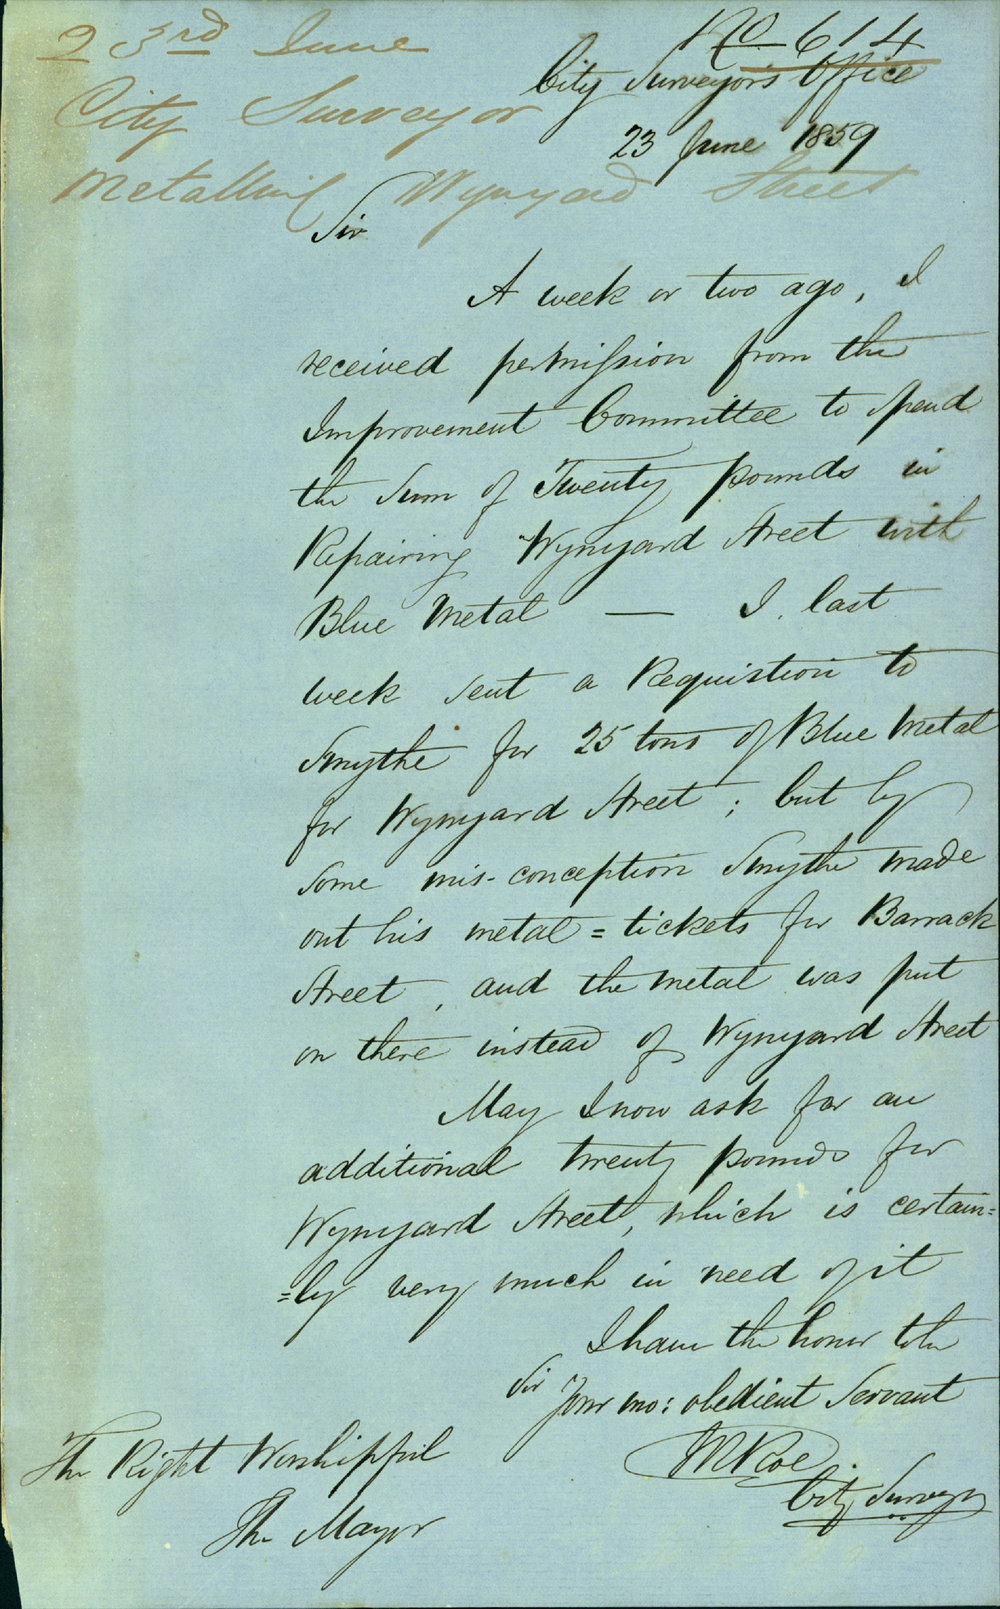 23rd June
City Surveyor
Metalling Wynyard Street
No 614
City Surveyor's Office
23 June 1859
Sir
A week or two ago, I
received permission from the
Improvement Committee to spend
the Sum of Twenty pounds in
Repairing Wynyard Street with
Blue Metal — I last
week sent a Requistion to
Smythe for 25 tons of Blue Metal
for Wynyard Street; but by
some mis-conception Smythe made
out his metal=tickets for Barrack
Street, and the metal was put
on there instead of Wynyard Street
May I now ask for an
additional twenty pounds for
Wynyard Street, which is certain=
=ly very much in need of it
I have the honor to be
Sir
Your mo: obedient Servant
WRoe
City Surveyor
The Right Worshipful
The Mayor